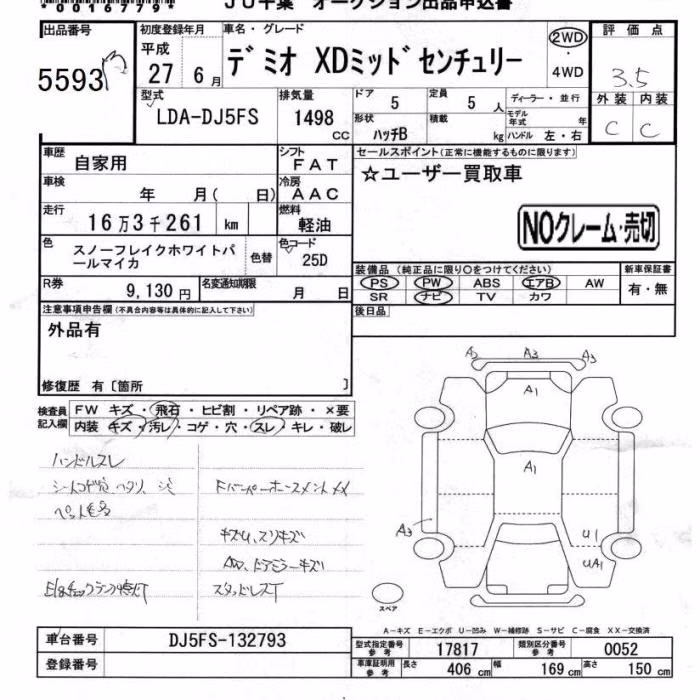 *0016779*
JU千葉 オークション出品申込書
出品番号 初度登録年月 車名・グレード 評価点
5593 平成 27年 6月 デミオ XDミッドセンチュリー 2WD・4WD 3.5
型式 排気量 ドア 5 定員 5人 ディーラー・並行 外装 内装
LDA-DJ5FS 1498cc 形状 ハッチB 積載 kg モデル年式 年 ハンドル 左・右 C C
車歴 自家用 シフト FAT セールスポイント(正常に機能するものに限ります)
車検 年 月( 日) 冷房 AAC ☆ユーザー買取車
走行 16万3千261 km 燃料 軽油 NOクレーム・売切
色 スノーフレイクホワイトパールマイカ 色替 色コード 25D
R券 9,130円 名変通知期限 月 日
装備品 (純正品に限り○をつけてください) 新車保証書
PS PW ABS エアB AW 有・無
SR ナビ TV カワ
注意事項申告欄(不具合内容等は具体的に記入して下さい) 後日品
外品有
修復歴 有〔箇所 〕
検査員記入欄 FW キズ・飛石・ヒビ割・リペア跡・×要
内装 キズ・汚レ・コゲ・穴・スレ・キレ・破レ
ハンドルスレ
シートコゲ穴、ヘタリ、シミ FバンパーホースメントXX
ペット毛多
キズU、スリキズ
AW、ドアミラーキズ
E/gチェックランプ点灯 スタッドレスT
A2 A3 A3
A1
A1
A3 U1
UA1
スペア
A-キズ E-エクボ U-凹み W-補修跡 S-サビ C-腐食 XX-交換済
車台番号 DJ5FS-132793 型式指定番号 参考 17817 類別区分番号 参考 0052
登録番号 車庫証明用 参考 長さ 406cm 幅 169cm 高さ 150cm